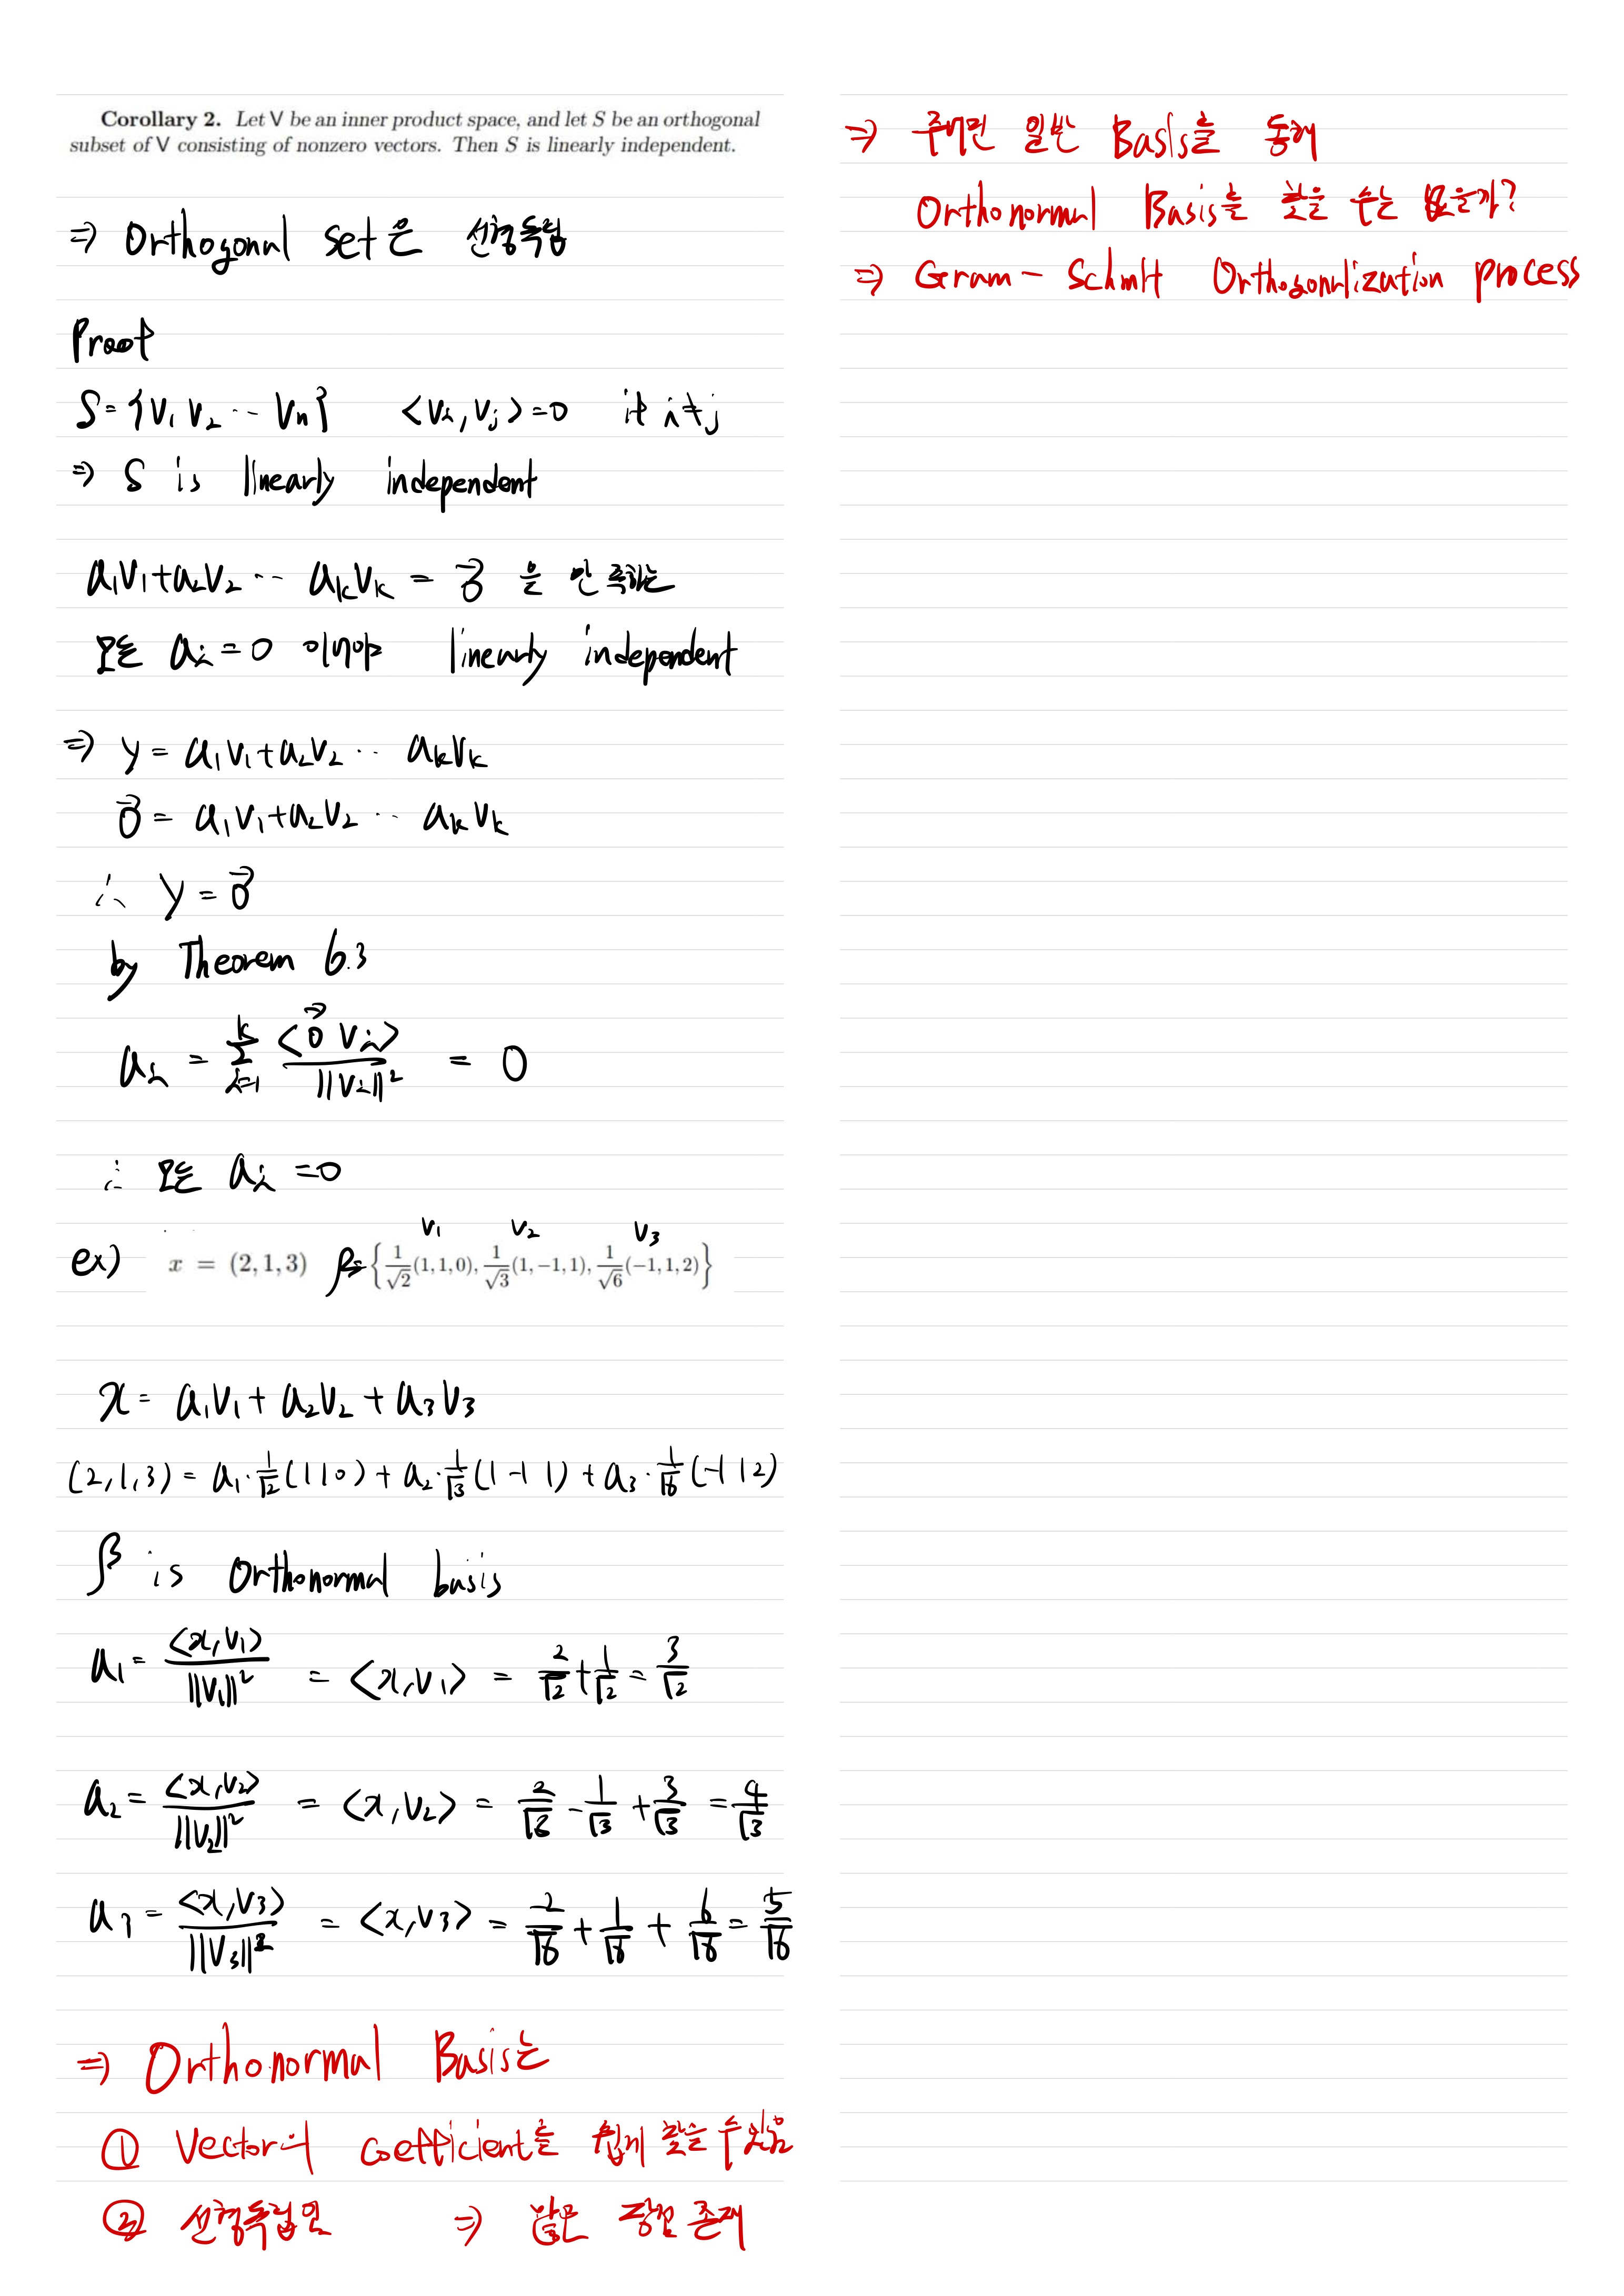 Corollary 2. Let V be an inner product space, and let S be an orthogonal
subset of V consisting of nonzero vectors. Then S is linearly independent.
⇒ Orthogonal set은 선형독립
Proof
S = {v₁ v₂ ⋯ vₙ} <vᵢ, vⱼ> = 0 if i ≠ j
⇒ S is linearly independent
a₁v₁+a₂v₂ ⋯ aₖvₖ = 0⃗ 을 만족하는
모든 aᵢ = 0 이어야 linearly independent
⇒ y = a₁v₁+a₂v₂ ⋯ aₖvₖ
0⃗ = a₁v₁+a₂v₂ ⋯ aₖvₖ
∴ y = 0⃗
by Theorem 6.3
aᵢ = Σᵢ₌₁ᵏ <0⃗ vᵢ> / ||vᵢ||² = 0
∴ 모든 aᵢ = 0
v₁ v₂ v₃
ex) x = (2, 1, 3) β = {1/√2 (1, 1, 0), 1/√3 (1, −1, 1), 1/√6 (−1, 1, 2)}
x = a₁v₁ + a₂v₂ + a₃v₃
(2,1,3) = a₁·1/√2 (1 1 0) + a₂·1/√3 (1 -1 1) + a₃·1/√6 (-1 1 2)
β is Orthonormal basis
a₁ = <x,v₁> / ||v₁||² = <x,v₁> = 2/√2 + 1/√2 = 3/√2
a₂ = <x,v₂> / ||v₂||² = <x,v₂> = 2/√3 - 1/√3 + 3/√3 = 4/√3
a₃ = <x,v₃> / ||v₃||² = <x,v₃> = -2/√6 + 1/√6 + 6/√6 = 5/√6
⇒ Orthonormal Basis는
① Vector의 coefficient를 쉽게 찾을 수 있음
② 선형독립임 ⇒ 많은 장점 존재
⇒ 주어진 일반 Basis를 통해
Orthonormal Basis를 찾을 수는 없을까?
⇒ Gram - Schmit Orthogonalization process